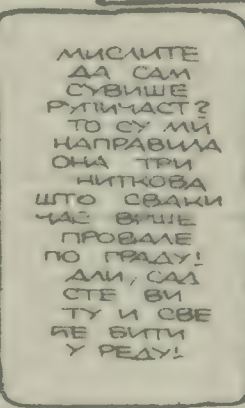 МИСЛИТЕ
ДА САМ
СУВИШЕ
РУПИЧАСТ?
ТО СУ МИ
НАПРАВИЛА
ОНА ТРИ
НИТКОВА
ШТО СВАКИ
ЧАС ВРШЕ
ПРОВАЛЕ
ПО ГРАДУ!
АЛИ, САД
СТЕ ВИ
ТУ И СВЕ
ЋЕ БИТИ
У РЕДУ!